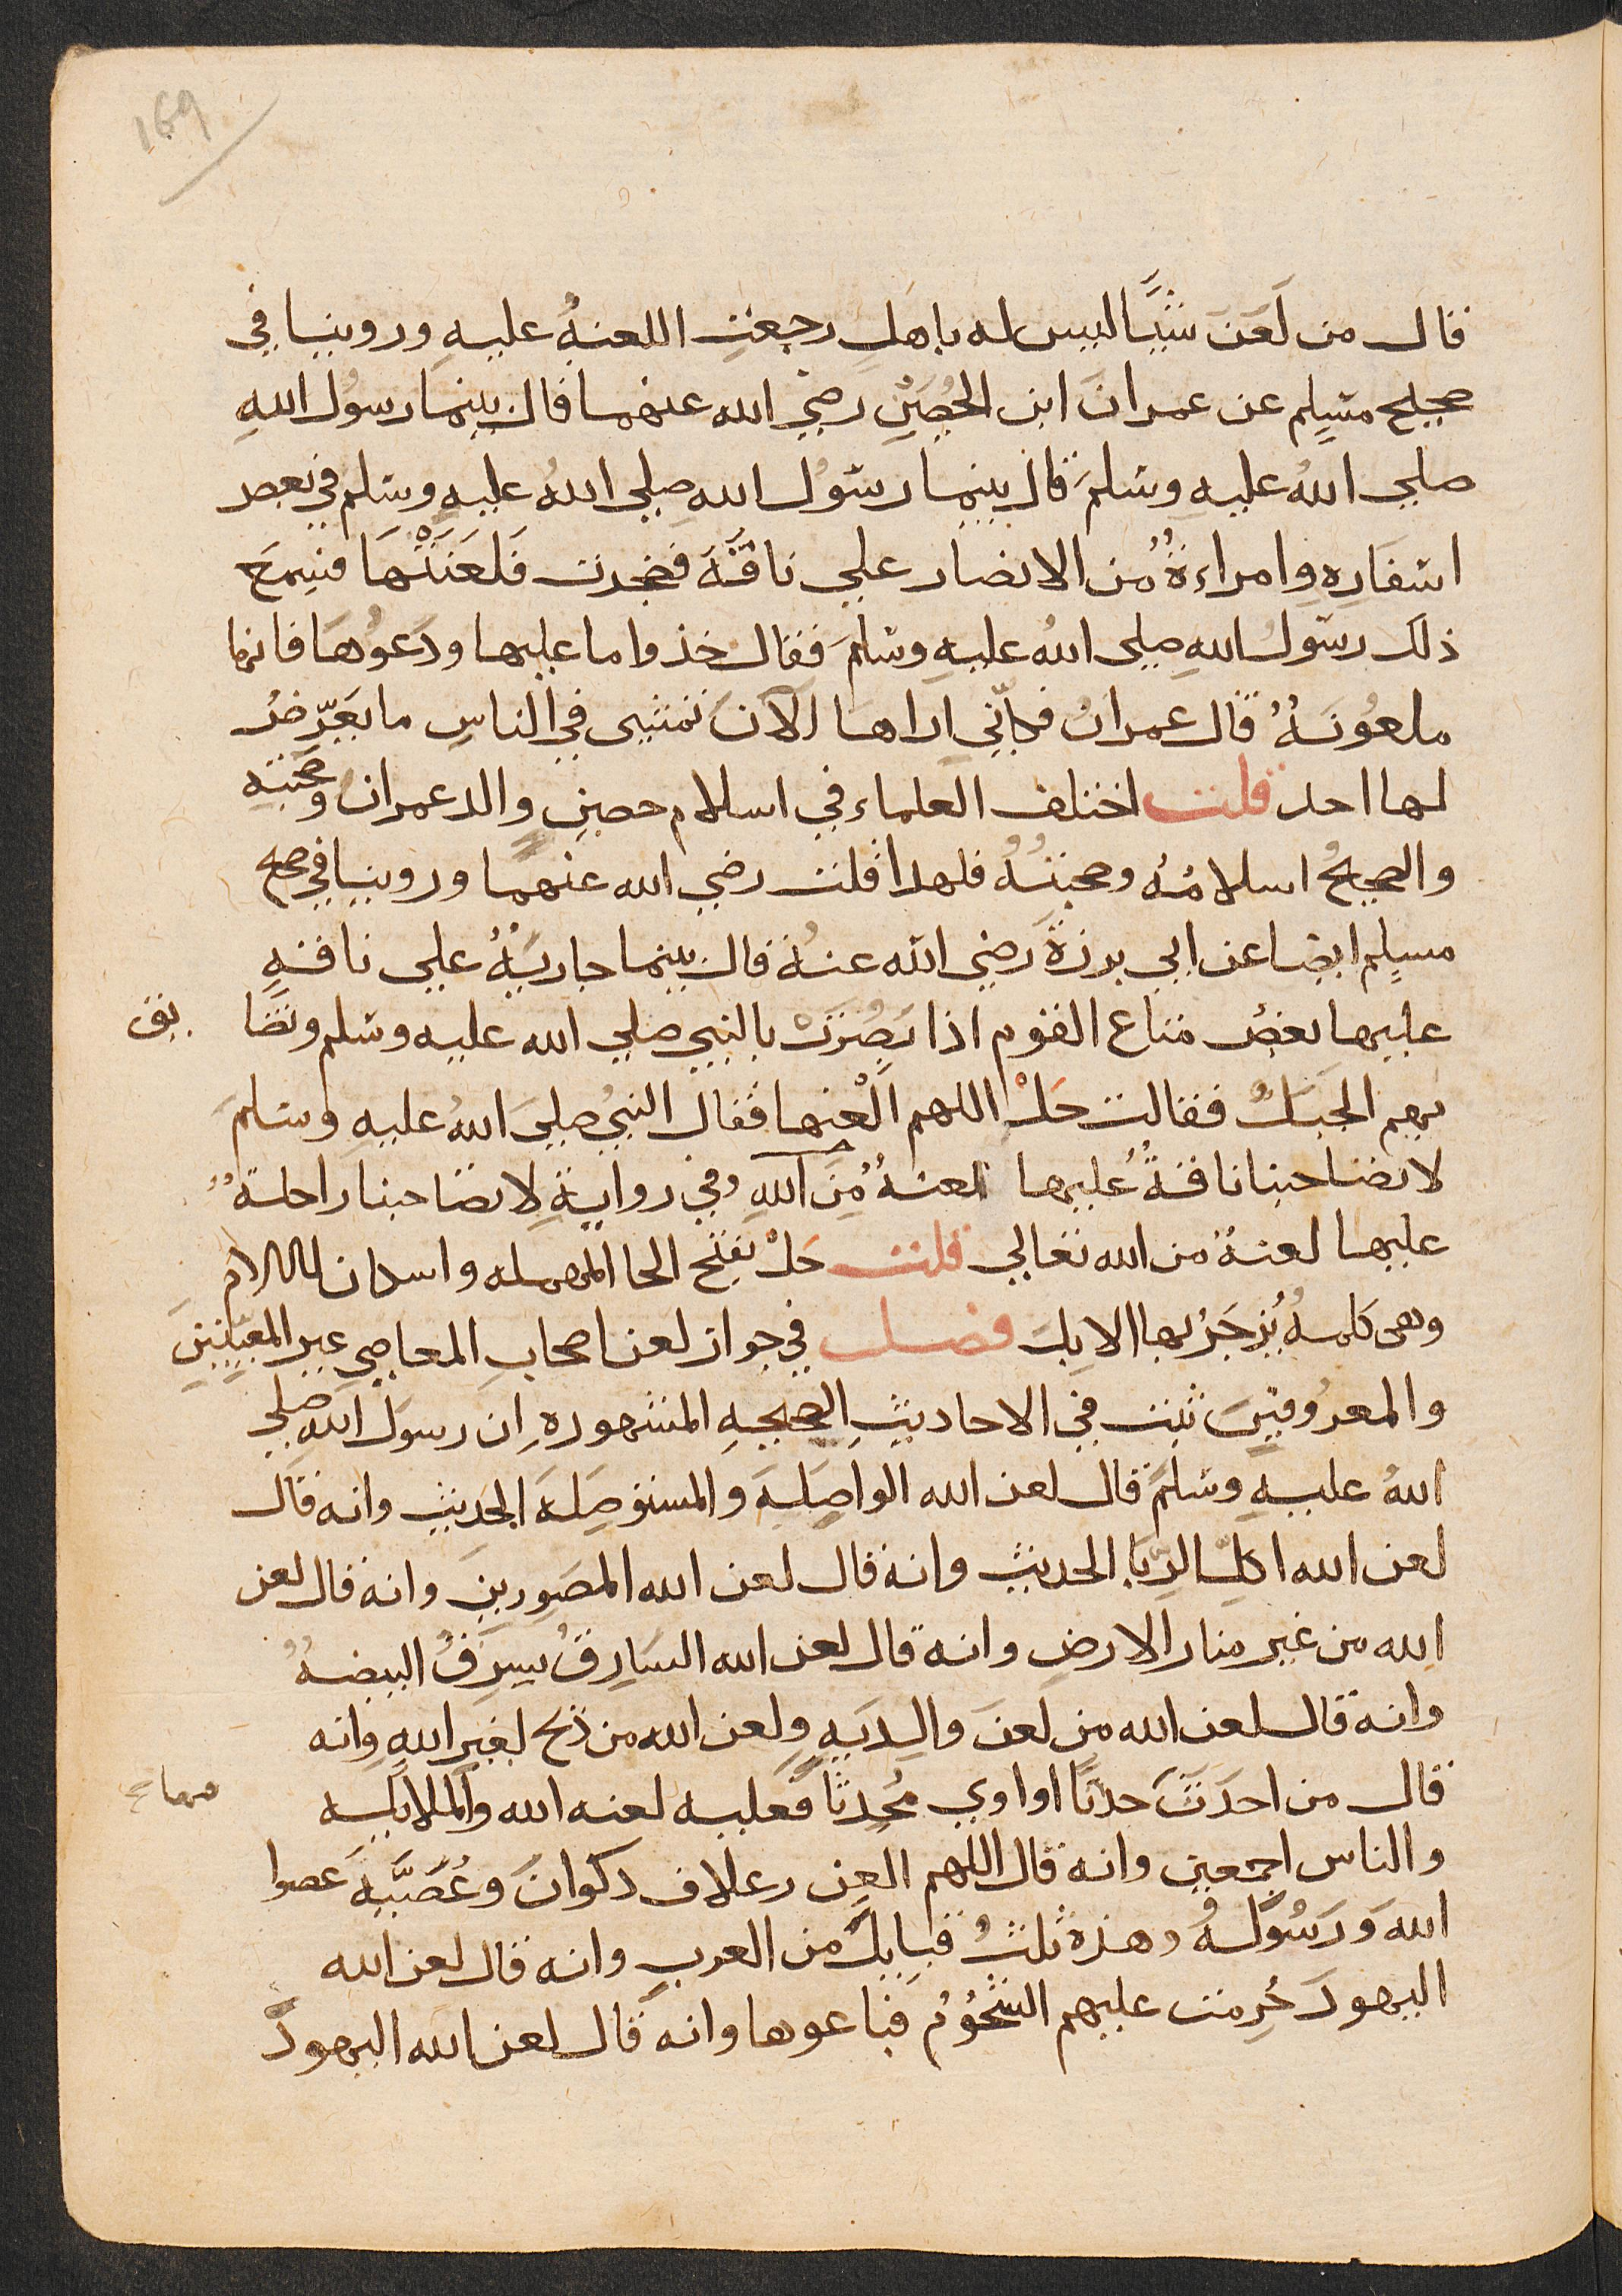 169
قال من لَعَنَ شيًا ليس له باهلٍ رجعتِ اللعنةُ عليهِ وروينا في
صحيح مسلم عن عمرانَ ابن الحُصَينِ رضي الله عنهما قال بينما رسول اللهِ
صلي اللهُ عليهِ وسلمَ قال بينما رسُول اللهِ صلي اللهُ عليهِ وسلم في بعض
اسفَارِهِ وامراءةٌ من الانصار علي ناقَةً فضجرت فَلَعَنَتْهَا فسمعَ
ذلك رسول اللهِ صلى اللهُ عليهِ وسلمَ فقال خذوا ما عليها ودَعُوهَا فانها
ملعُونَةٌ قال عمرانُ فكأني اراها الآنَ تمشي في الناسِ ما يعَرّضُ
لها احد قلت اختلف العلماء في اسلام حصينٍ والد عمران وصحبتهِ
والصحيحُ اسلامُهُ وصحبتُهُ فلهذا قلت رضي الله عنهما وروينا في صحيح
مسلِم ايضا عن ابي برزةَ رضي الله عنهُ قال بينما جاريةٌ علي ناقةٍ
عليها بعضُ متاع القوم اذا بَصُرَتْ بالنبي صلي الله عليه وسلم وتضا يق
بهم الجبَلُ فقالت حَلْ اللهم الْعنها فقال النبيُ صلي اللهُ عليهِ وسلمَ
لا تصاحبنا ناقةٌ عليها لعنةٌ مِنَ اللهِ وفي روايةٍ لا تصاحبنا راحلةٌ
عليها لعنةٌ من الله تعالي قلت حَلْ بفتح الحا المهمله واسكان اللام
وهى كلمةٌ يُزجَرُ بها الابِلَ فصل في جواز لعن اصحابِ المعاصي غير المعيّنينَ
والمعرُوفينَ ثبت في الاحاديثِ الصحيحهِ المشهورهِ ان رسولَ اللهِ صلي
اللهُ عليهِ وسلمَ قال لعن الله الواصِلَةَ والمستوصِلَةَ الحديث وانه قال
لعن الله اكِلَ الرِبَا الحديث وانه قال لعن الله المصَورينِ وانه قال لعن
الله من غير منار الارضِ وانه قال لعن الله السَارِقَ يسرقُ البيضةُ
وانه قال لعن الله من لَعنَ والِدَيهِ ولعن الله من ذبح لغيرِ اللهِ وانه
قال من احدَثَ حدثًا او اوي مُحدِثًا فعليه لعنه الله والملايكه
والناس اجمعين وانه قال اللهم العِن رعلا ف ذكوانَ وعُصَيَّةَ عصوا
اللهَ ورَسُولَهُ وهذه ثلثُ قبايلَ من العربِ وانه قال لعن الله
اليهودَ حُرِمت عليهم الشحُومُ فباعوها وانه قال لعن الله اليهودَ